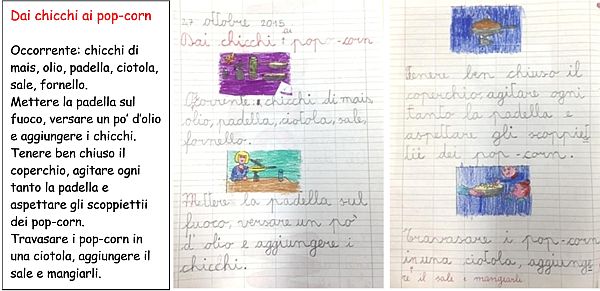 Dai chicchi ai pop-corn
Occorrente: chicchi di
mais, olio, padella, ciotola,
sale, fornello.
Mettere la padella sul
fuoco, versare un po' d'olio
e aggiungere i chicchi.
Tenere ben chiuso il
coperchio, agitare ogni
tanto la padella e
aspettare gli scoppiettii
dei pop-corn.
Travasare i pop-corn in
una ciotola, aggiungere il
sale e mangiarli.
27 ottobre 2015
Dai chicchi ai pop-corn
Occorrente: chicchi di mais,
olio, padella, ciotola, sale,
fornello.
Mettere la padella sul
fuoco, versare un po'
d'olio e aggiungere i
chicchi.
Tenere ben chiuso il
coperchio, agitare ogni
tanto la padella e
aspettare gli scoppiet
tii dei pop-corn.
Travasare i pop-corn
in una ciotola, aggiunge
re il sale e mangiarli